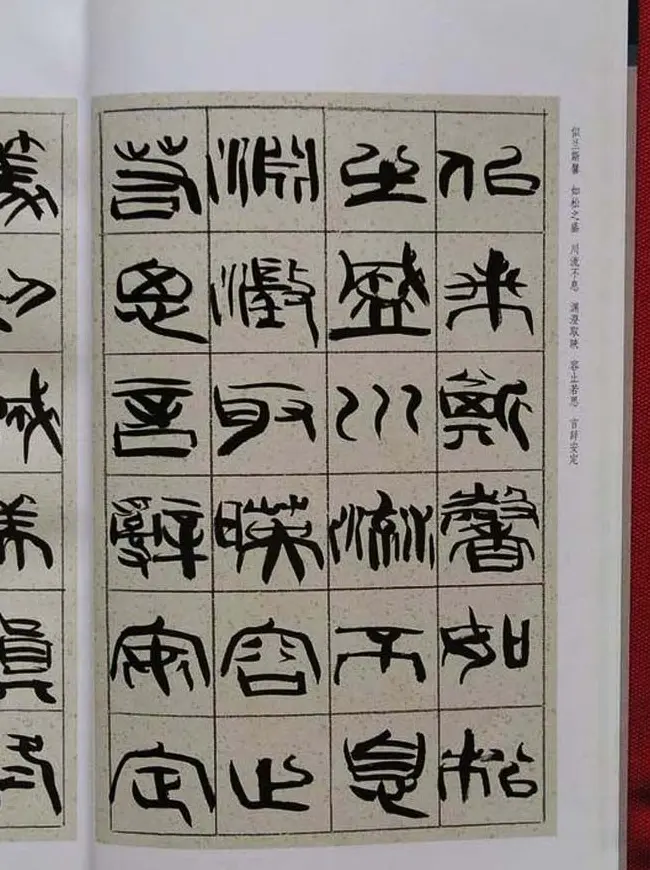 似兰斯馨 如松之盛 川流不息 渊澄取映 容止若思 言辞安定
似蘭斯馨如松
之盛川流不息
淵澂取暎容止
若思言辭安定